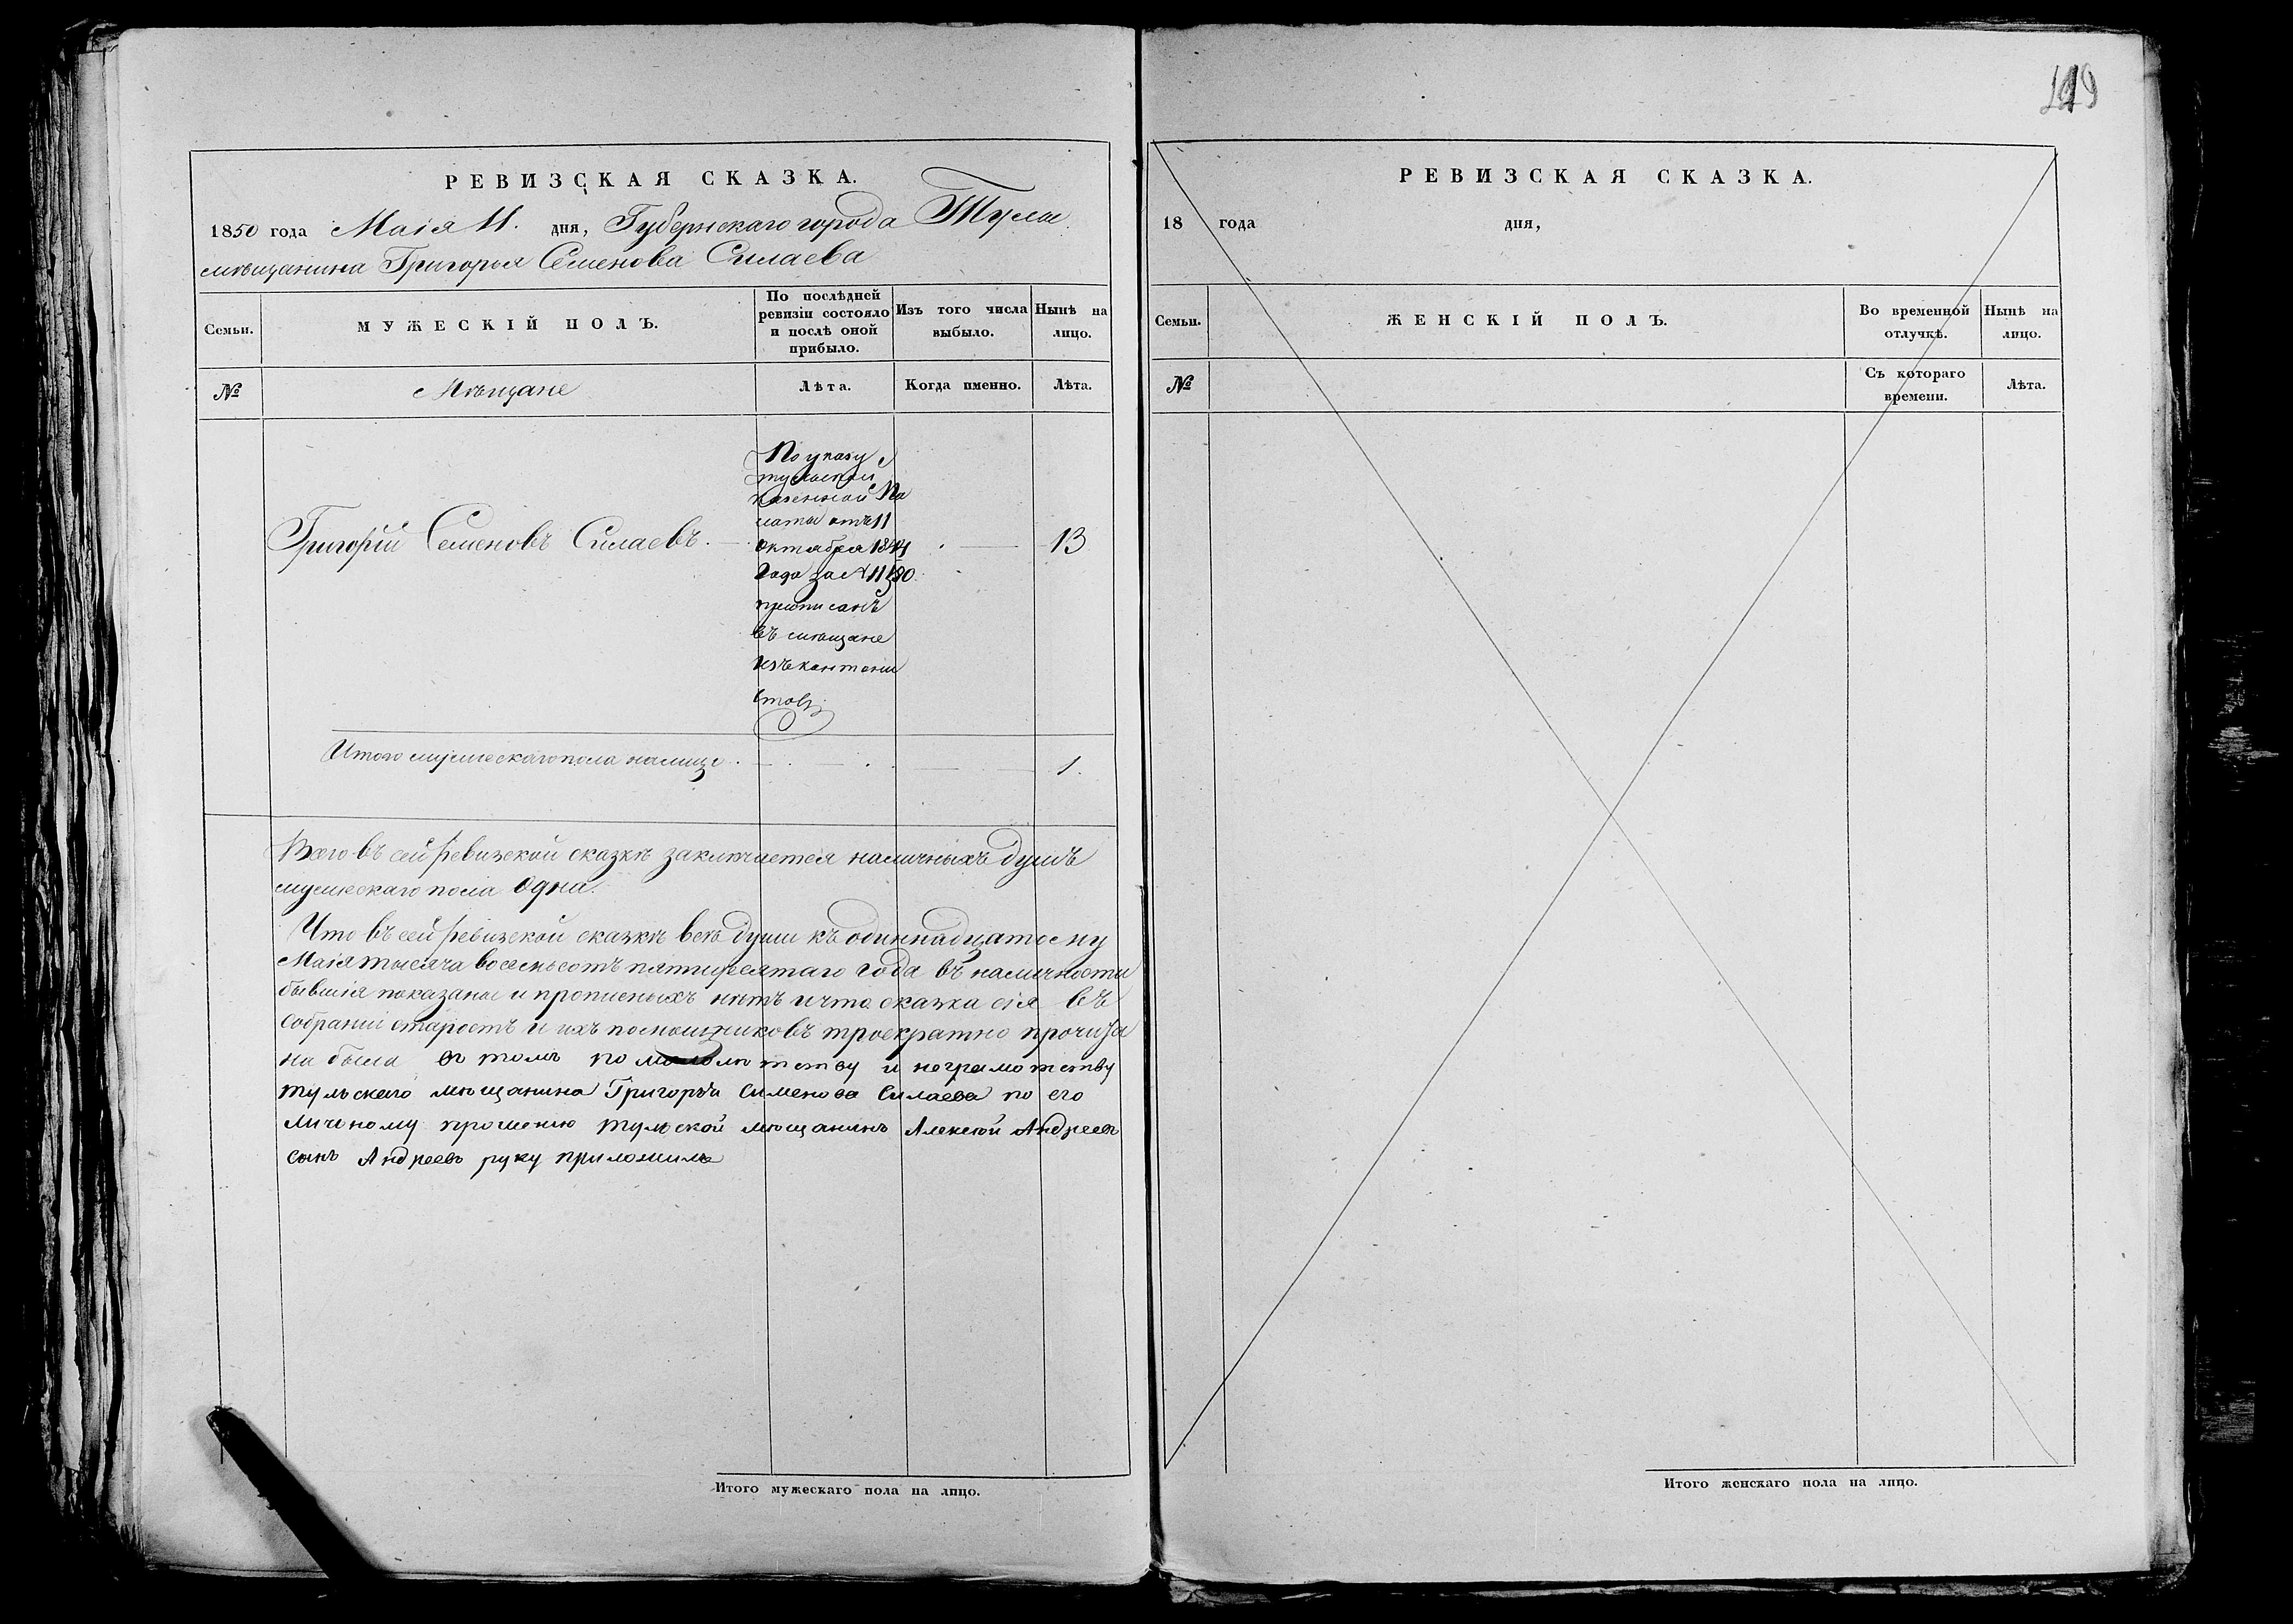 РЕВИЗСКАЯ СКАЗКА.
1850 года Маія 11. дня, Губернскаго города Тулы
мѣщанина Григорья Семенова Силаева
Семьи.
МУЖЕСКІЙ ПОЛЪ.
По послѣдней
ревизіи состояло
и послѣ оной
прибыло.
Изъ того числа
выбыло.
Нынѣ на
лицо.
№
Мѣщане
Лѣта.
Когда именно.
Лѣта.
По указу
тульской
казенной Па
латы отъ 11
октября 1844
Года за №
приписанъ
въ мѣщане
изъ кантони
стовъ
Григорій Семеновъ Силаевъ.
13
Итого мужескаго пола налицо
1.
Всего въ сей ревизской сказкѣ заключается наличныхъ душъ
мужескаго пола Одна.
Что въ сей ревизской сказкѣ всѣ души къ одиннадцатому
Маія тысяча восемьсотъ пятидесятаго года въ наличности
бывшія показаны и прописныхъ нѣтъ и что сказка сія въ
собраніи старостъ и ихъ помощниковъ троекратно прочита
на была в томъ по малолѣтству и неграмотству
тульскаго мѣщанина Григорья Сименова Силаева по его
личеному прошению тульской мѣщанинъ Алексѣй Андреевъ
сынъ Андреевъ руку приложилъ
Итого мужескаго пола на лицо.
РЕВИЗСКАЯ СКАЗКА.
18 года дня,
Семьи.
ЖЕНСКІЙ ПОЛЪ.
Во временной
отлучкѣ.
Нынѣ на
лицо.
№
Съ котораго
времени.
Лѣта.
Итого женскаго пола на лицо.